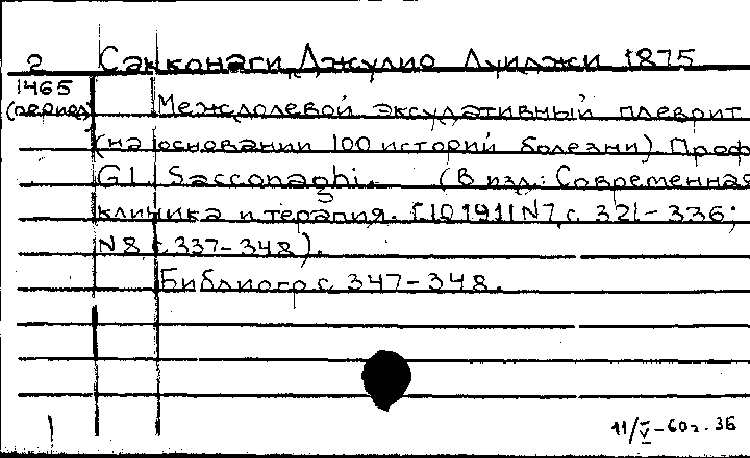 2 Сакконаги, Джулио Луиджи 1875
1465
(период)
Междолевой эксудативный плеврит
(на основании 100 историй болезни). Проф
G. L. Sacconaghi. (В изд.: Современная
клиника и терапия. 1911 N7, с. 321-336;
N8, с. 337-348).
Библиогр. с. 347-348.
11/V-60г. ЗБ